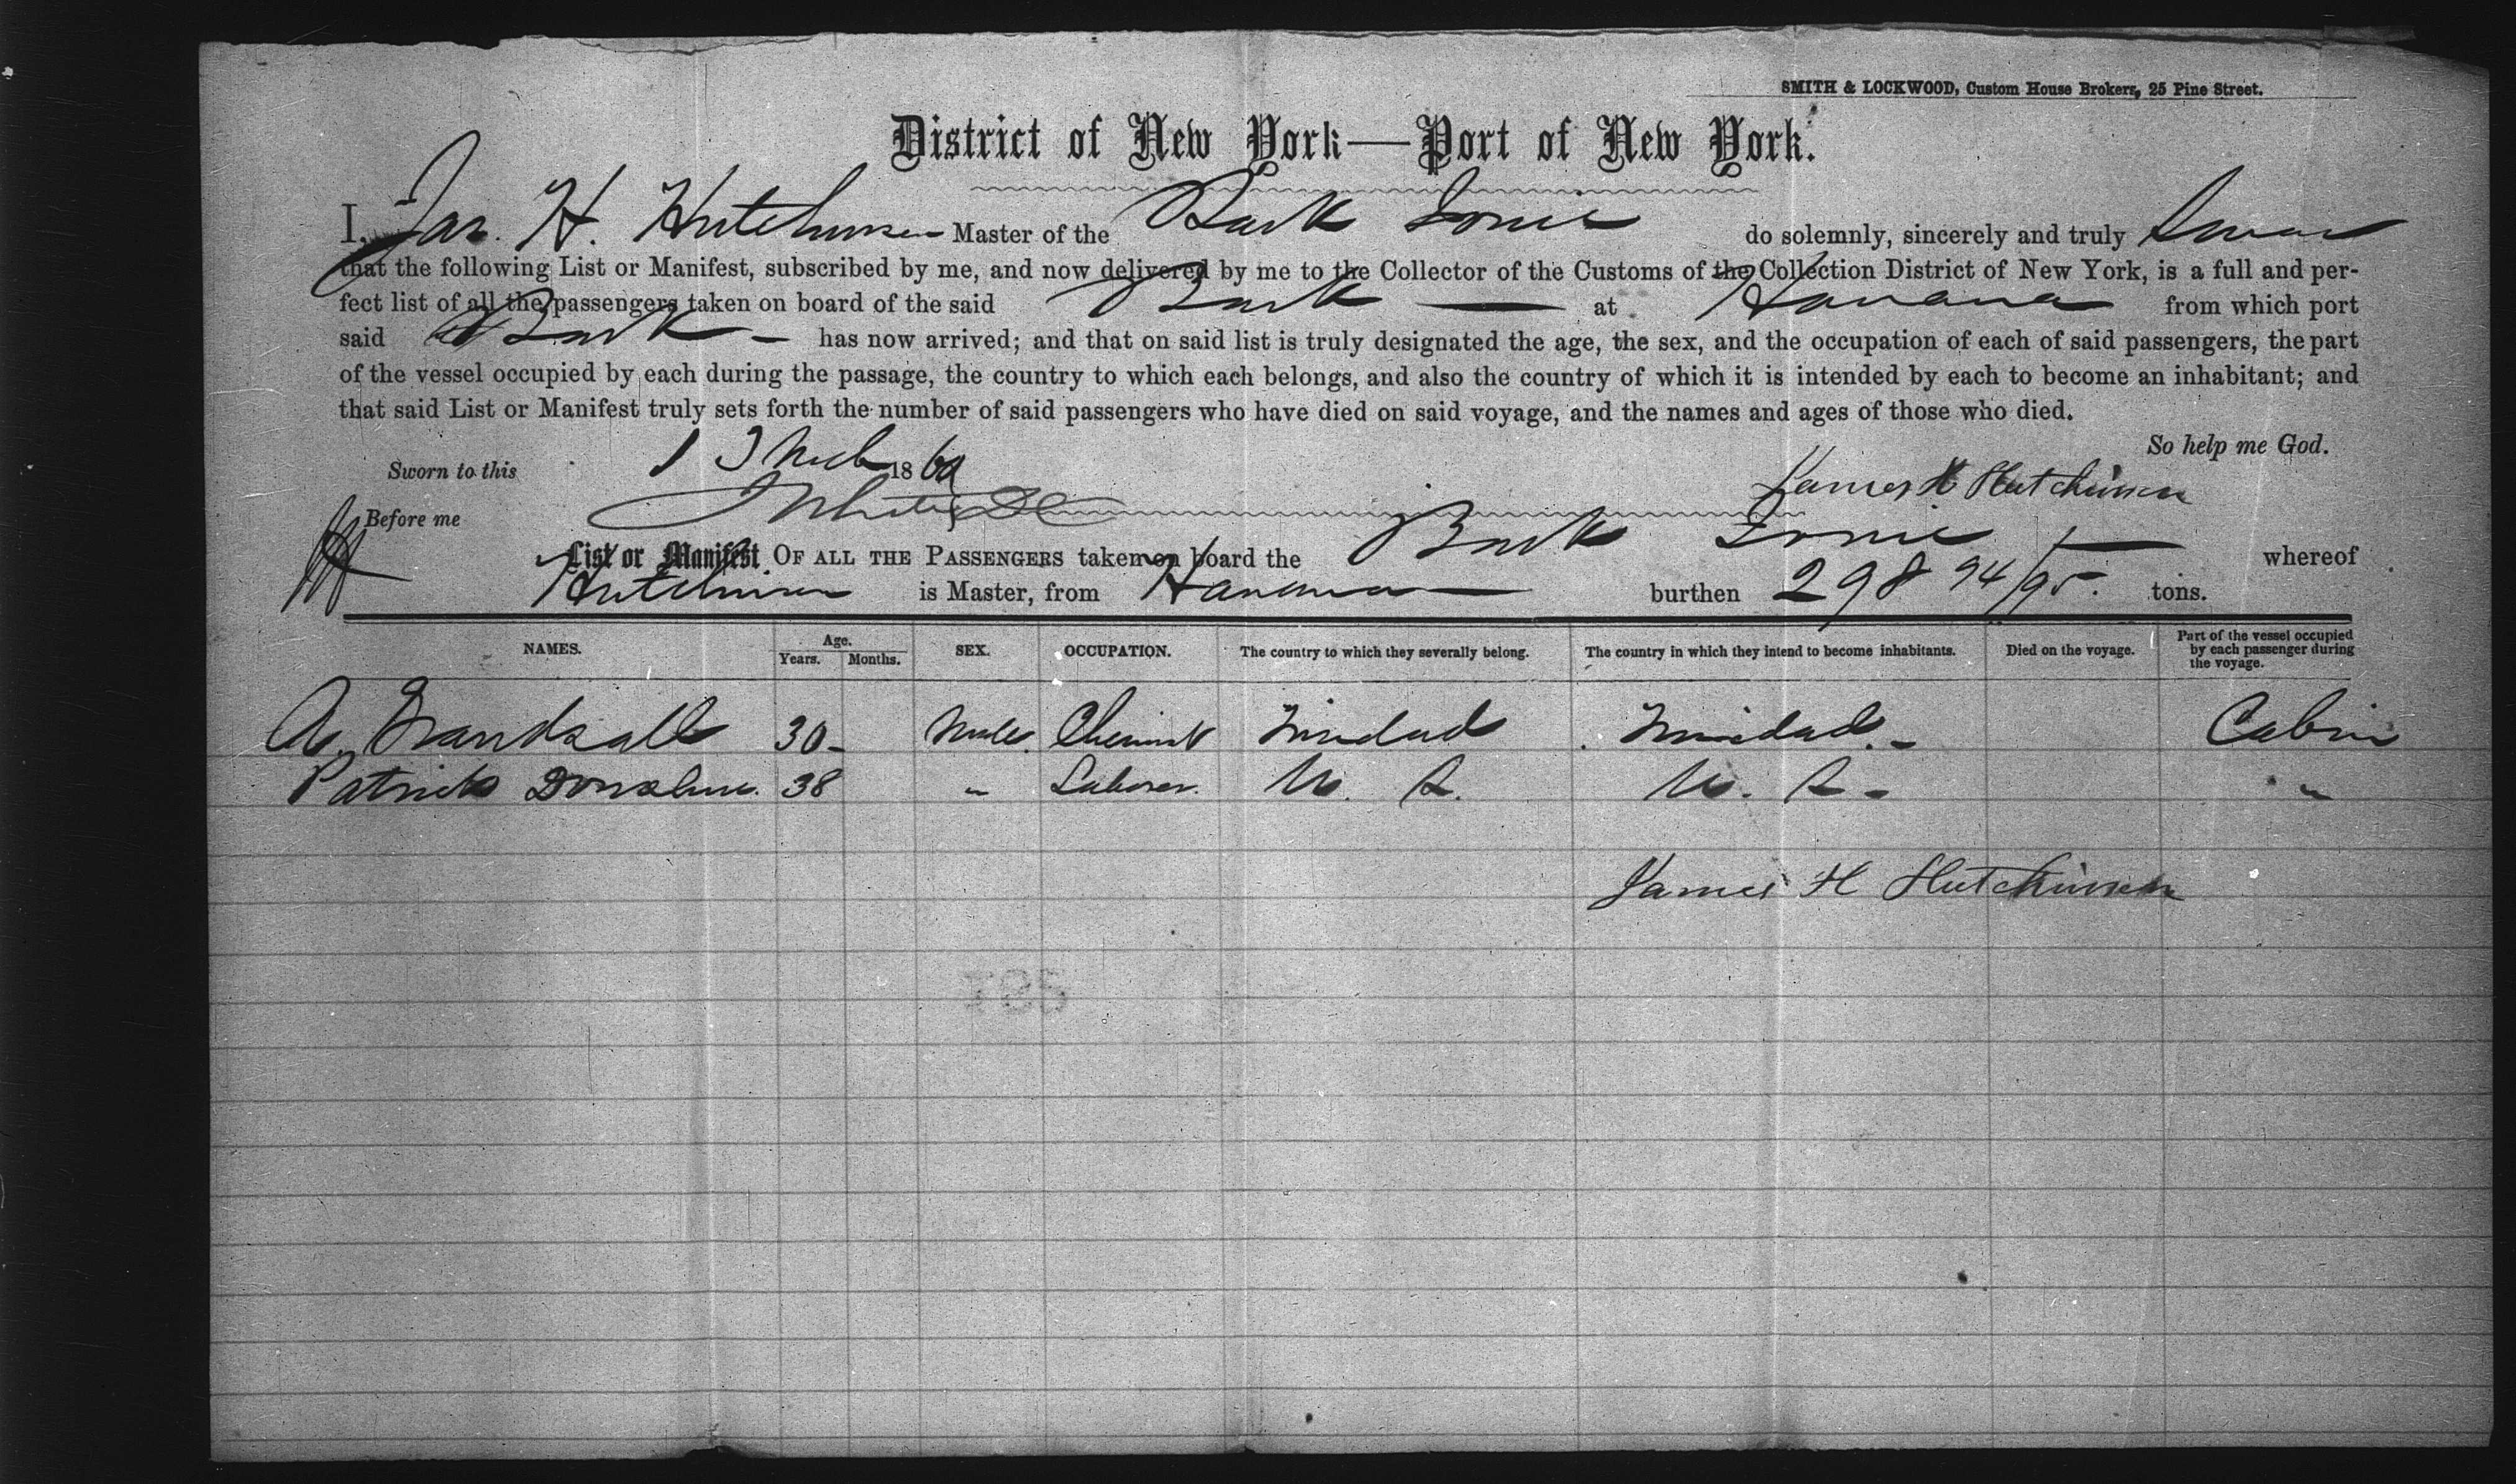 SMITH & LOCKWOOD, Custom House Brokers, 25 Pine Street.
District of New York—Port of New York.
I, Jas. H. Hutchinson Master of the Bark Ionic do solemnly, sincerely and truly Swear
that the following List or Manifest, subscribed by me, and now delivered by me to the Collector of the Customs of the Collection District of New York, is a full and per-
fect list of all the passengers taken on board of the said Bark — at Havana from which port
said Bark - has now arrived; and that on said list is truly designated the age, the sex, and the occupation of each of said passengers, the part
of the vessel occupied by each during the passage, the country to which each belongs, and also the country of which it is intended by each to become an inhabitant; and
that said List or Manifest truly sets forth the number of said passengers who have died on said voyage, and the names and ages of those who died.
So help me God.
Sworn to this 13 Mch 1860
James H Hutchinson
Before me
List or Manifest OF ALL THE PASSENGERS taken on board the Bark Ionic — whereof
Hutchinson is Master, from Havana — burthen 298 94/95 tons.
NAMES. Age. Years. Months. SEX. OCCUPATION. The country to which they severally belong. The country in which they intend to become inhabitants. Died on the voyage. Part of the vessel occupied by each passenger during the voyage.
A. 30 - Male. Chemist Trinidad Trinidad. - Cabin
Patrick Donahue. 38 " Laborer. U. S. U. S - "
James H Hutchinson